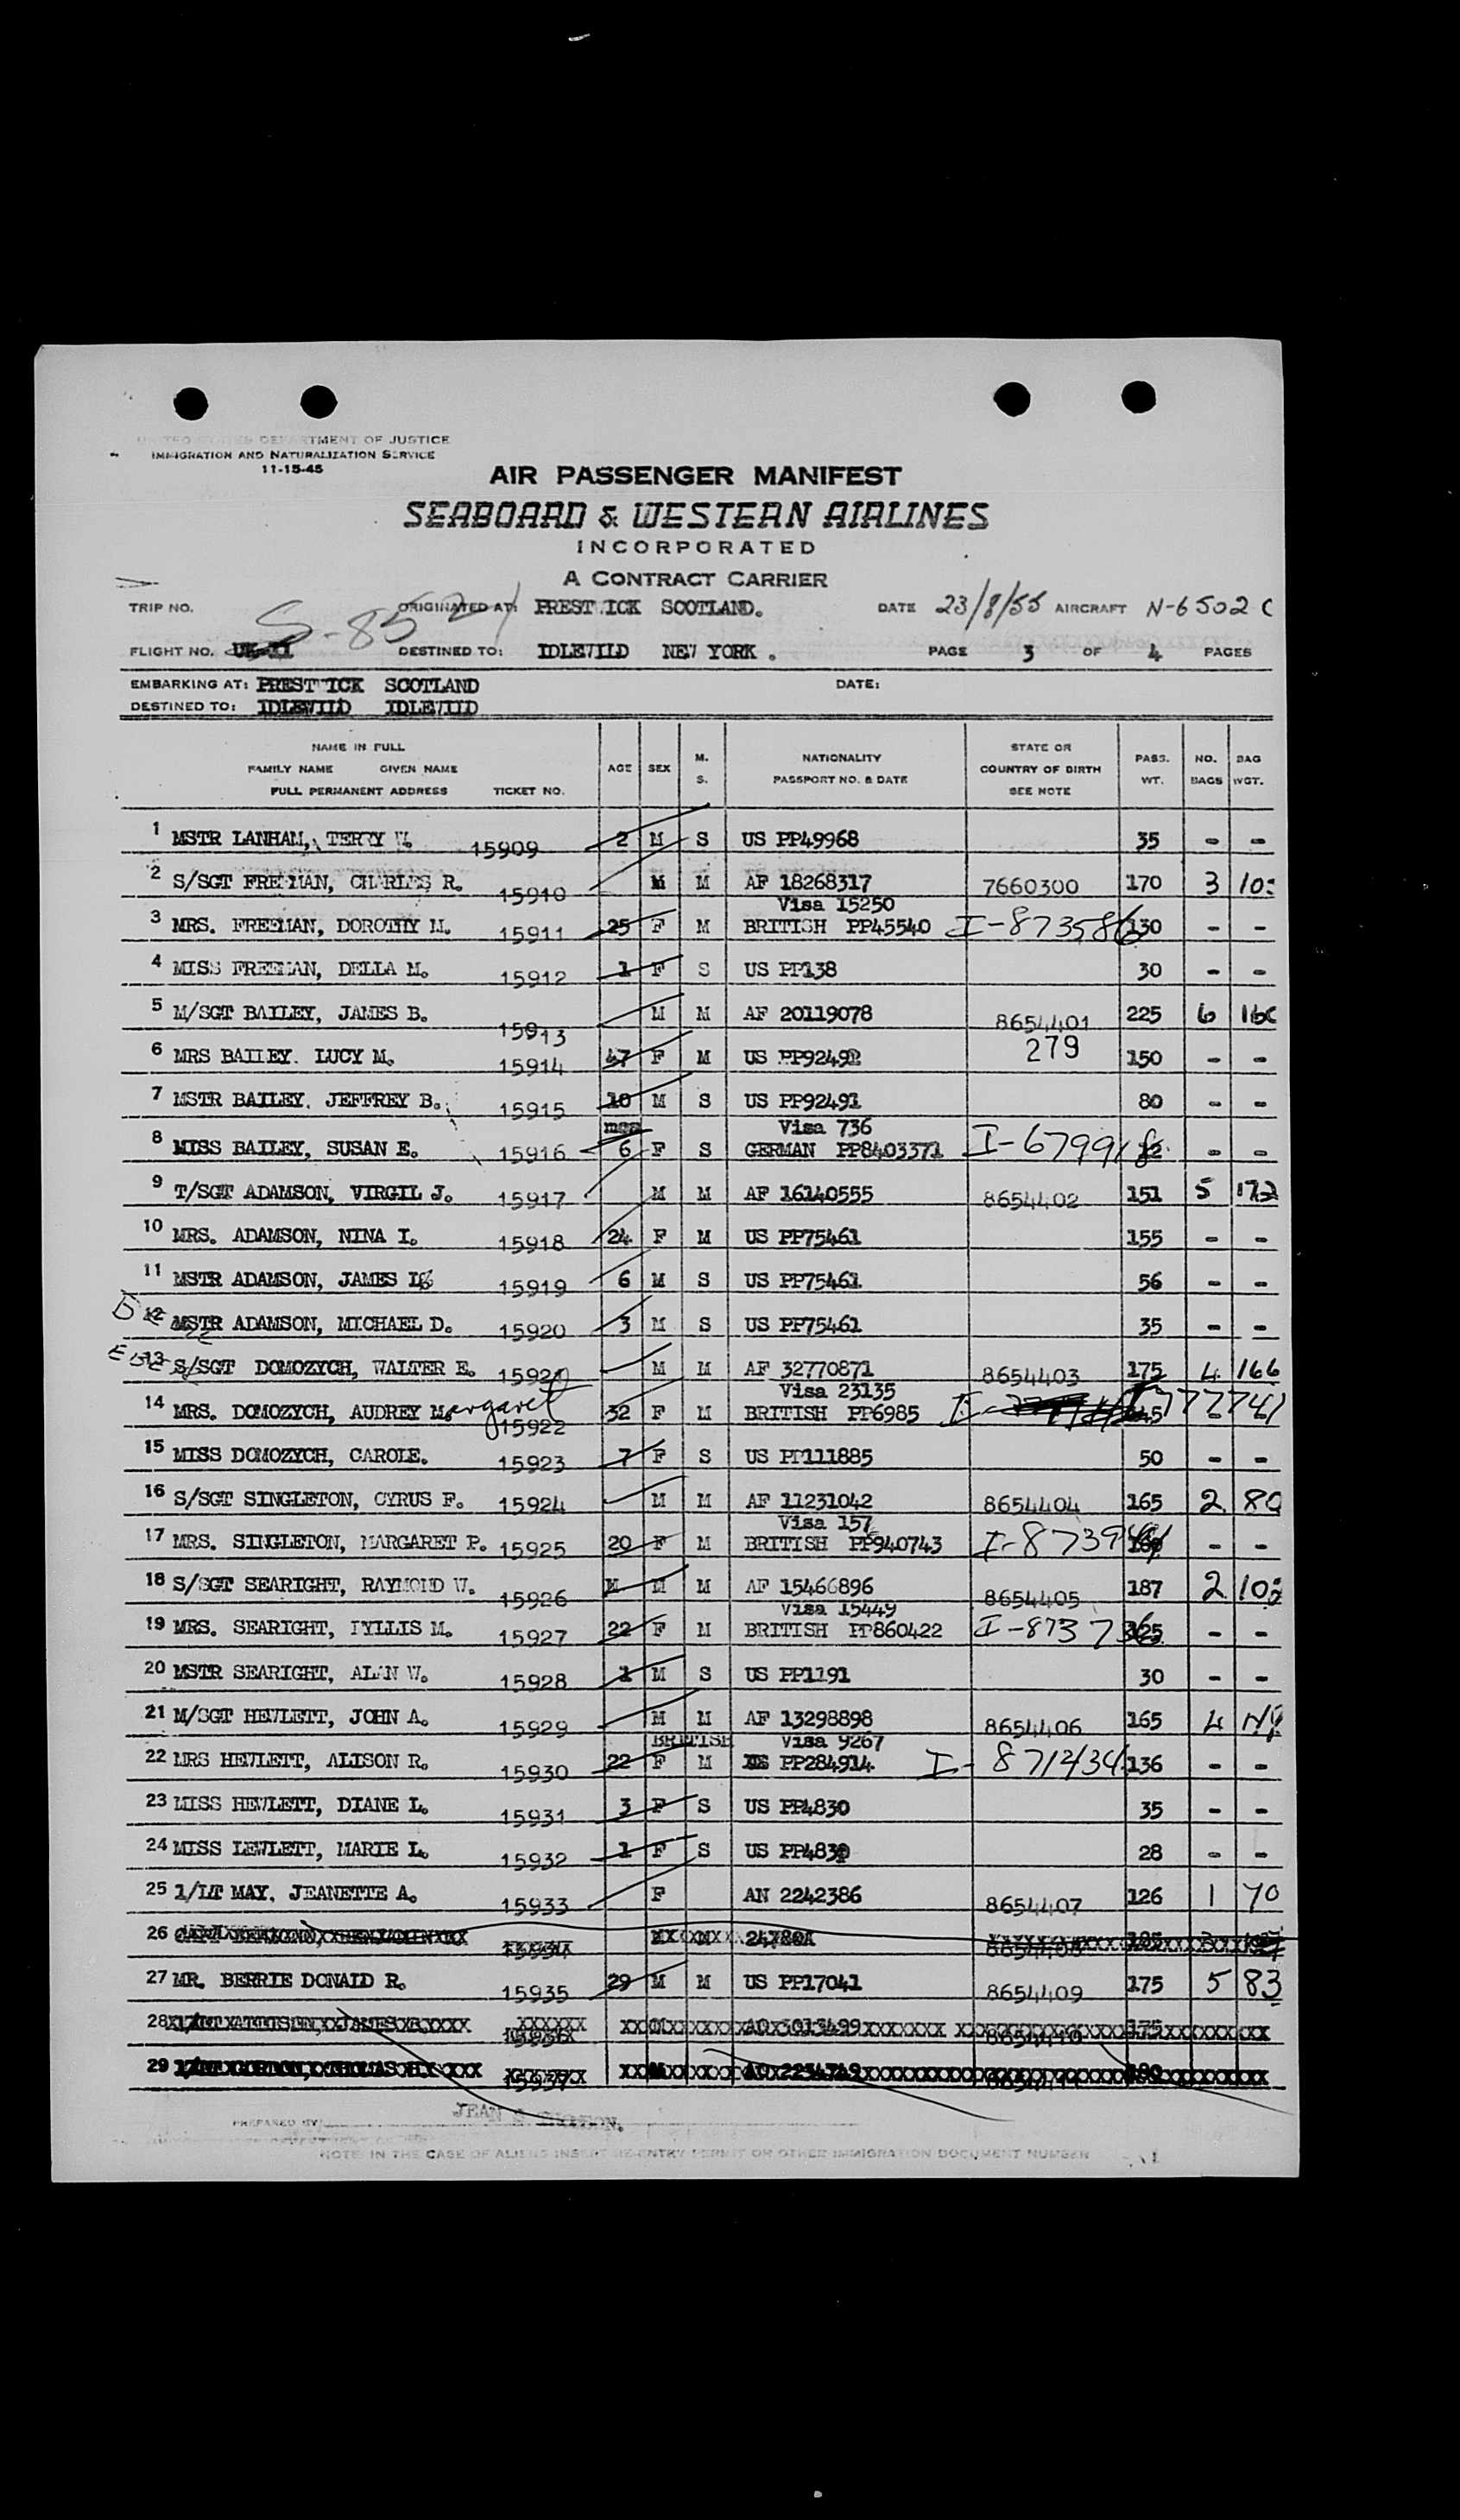 UNITED STATES DEPARTMENT OF JUSTICE
IMMIGRATION AND NATURALIZATION SERVICE
11-15-45
AIR PASSENGER MANIFEST
SEABOARD & WESTERN AIRLINES
INCORPORATED
A CONTRACT CARRIER
TRIP NO. S-8524 ORIGINATED AT: PRESTWICK SCOTLAND. DATE 23/8/55 AIRCRAFT N-6502C
FLIGHT NO. DESTINED TO: IDLEWILD NEW YORK . PAGE 3 OF 4 PAGES
EMBARKING AT: PRESTWICK SCOTLAND DATE:
DESTINED TO: IDLEWILD IDLEWILD
NAME IN FULL
FAMILY NAME GIVEN NAME
FULL PERMANENT ADDRESS TICKET NO.
AGE SEX M. S.
NATIONALITY
PASSPORT NO. & DATE
STATE OR
COUNTRY OF BIRTH
SEE NOTE
PASS. WT. NO. BAGS BAG WGT.
1 MSTR LANHAM, TERRY W. 15909 2 M S US PP49968 35 - -
2 S/SGT FREEMAN, CHARLES R. 15910 M M AF 18268317 7660300 170 3
Visa 15250
3 MRS. FREEMAN, DOROTHY M. 15911 25 F M BRITISH PP45540 I-873586 130 - -
4 MISS FREEMAN, DELLA M. 15912 1 F S US PP138 30 - -
5 M/SGT BAILEY, JAMES B. 15913 M M AF 20119078 8654401 225 6
279
6 MRS BAILEY. LUCY M. 15914 47 F M US PP92492 150 - -
7 MSTR BAILEY. JEFFREY B. 15915 10 M S US PP92491 80 - -
mos Visa 736
8 MISS BAILEY, SUSAN E. 15916 6 F S GERMAN PP8403371 I-679918 12 - -
9 T/SGT ADAMSON, VIRGIL J. 15917 M M AF 16140555 8654402 151 5 172
10 MRS. ADAMSON, NINA I. 15918 24 F M US PP75461 155 - -
11 MSTR ADAMSON, JAMES L 15919 6 M S US PP75461 56 - -
12 MSTR ADAMSON, MICHAEL D. 15920 3 M S US PP75461 35 - -
13 S/SGT DOMOZYCH, WALTER E. 15921 M M AF 32770871 8654403 175 4 166
Visa 23135
14 MRS. DOMOZYCH, AUDREY Margaret 15922 32 F M BRITISH PP6985 I 777741
15 MISS DOMOZYCH, CAROLE. 15923 7 F S US PP111885 50 - -
16 S/SGT SINGLETON, CYRUS F. 15924 M M AF 11231042 8654404 165 2 80
Visa 157
17 MRS. SINGLETON, MARGARET P. 15925 20 F M BRITISH PP940743 - -
18 S/SGT SEARIGHT, RAYMOND W. 15926 M M M AF 15466896 8654405 187 2
Visa 15449
19 MRS. SEARIGHT, IYLLIS M. 15927 22 F M BRITISH PP860422 I-873736 - -
20 MSTR SEARIGHT, ALAN W. 15928 1 M S US PP1191 30 - -
21 M/SGT HEWLETT, JOHN A. 15929 M M AF 13298898 8654406 165 4
BRITISH Visa 9267
22 MRS HEWLETT, ALISON R. 15930 22 F M PP284914 I-8712434 136 - -
23 MISS HEWLETT, DIANE L. 15931 3 F S US PP4830 35 - -
24 MISS LEWLETT, MARIE L. 15932 1 F S US PP4830 28 - -
25 1/LT MAY. JEANETTE A. 15933 F AN 2242386 8654407 126 1 70
26
27 MR. BERRIE DONALD R. 15935 29 M M US PP17041 8654409 175 5 83
28 AO 3013499
29
PREPARED BY: JEAN
NOTE IN THE CASE OF ALIENS INSERT RE-ENTRY PERMIT OR OTHER IMMIGRATION DOCUMENT NUMBER